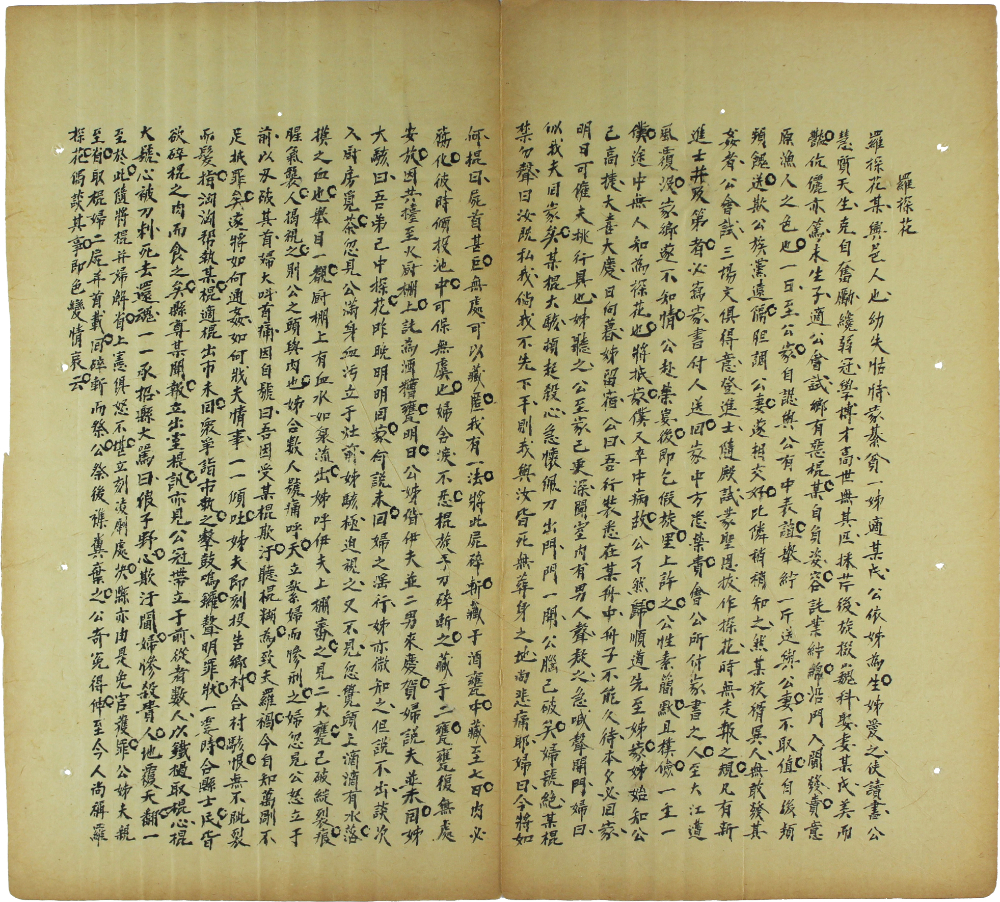 羅探花
羅探花某與邑人也幼失怙恃家綦貧一姊適某氏公依姊為生姊愛之使讀書公
慧質天生克自奮勵纔弱冠學博才高世無其匹採芹後旋掇巍科娶妻某氏美而
艷伉儷亦篤未生子適公會試鄉有惡棍某自負姿容託業紵綿沿門入閨發賣意
原漁人之色也一日至公家自認與公有中表誼舉紵一斤送與公妻不取值自後頻
頻餽送欺公族黨遠仍胆調公妻遂相交好比隣稍稍知之然某狡猾異人無敢發其
姦者公會試三場文俱得意登進士隨殿試蒙聖恩拔作探花時無走報之規凡有新
進士并及第者必寫家書付人送回家中方悉榮貴會公所付家書之人至大江遭
風覆沒家鄉遂不知情公赴榮宴後即乞假旋里上許之公性素簡默且樸儉一主一
僕途中無人知為探花也將抵家僕又卒中病故公孑然歸順道先至姊家姊始知公
已高捷大喜大慶日向暮姊留宿公曰吾行裝悉在某舟中舟子不能久待本夕必回家
明日可僱夫挑行具也姊聽之公至家已更深閨室內有男人聲敲之急喊聲開門婦曰
似我夫回家矣某棍大駭頓起殺心急懷佩刀出門門一開公腦已破矣婦號絕某棍
禁勿聲曰汝既私我倘我不先下手則我與汝皆死無葬身之地尚悲痛耶婦曰今將如
何棍曰屍首甚巨無處可以藏匿我有一法將此屍碎斬藏于酒甕中藏至七日內必
腐化彼時傾投池中可保無虞也婦含淚不悉棍旋予刀碎斷之藏于二甕甕復無處
安放因共擡至火厨棚上詭為酒糟甕明日公姊偕伊夫並二男來慶賀婦說夫並未回姊
大駭曰吾弟已中探花昨晚明明回家何說未回婦之淫行姊亦微知之但說不出談次
入厨房覓茶忽見公滿身血污立于灶前姊駭極迫視之又不見忽覺頭上滴滴有水落
摸之血也舉目一觀厨棚上有血水如泉流出姊呼伊夫上棚審之見二大甕已破綻裂痕
腥氣襲人揭視之則公之頭與肉也姊合數人號痛呼天立縶婦而慘刑之婦忽見公怒立于
前以手破其首婦大呌首痛因自號曰吾因受某棍欺汙聽棍糊為致夫羅禍今自知萬剮不
足抵罪矣遂將如何通姦如何戕夫情事一一傾吐姊夫即刻投告鄉村合村駭恨無不眦裂
而髮指洶洶帮執某棍適棍出市未回衆爭詣市執之擊鼓鳴鑼聲明罪狀一霎時合縣士民皆
欲碎棍之肉而食之矣縣尊某聞報立出堂提訊亦見公冠帶立于前從者數人以鐵撾取棍心棍
大號心被刀刺死去還魂一一承招縣大罵曰狼子野心欺汙閨婦慘設貴人地覆天翻一
至於此隨將棍并婦解省上憲俱怒不堪立刻凌剮處決縣亦由是免官獲罪公姊夫親
至省取棍婦二屍并首載回碎斬而祭公祭後襍糞棄之公奇冤得伸至今人尚稱羅
探花偶談其事即色變情哀云